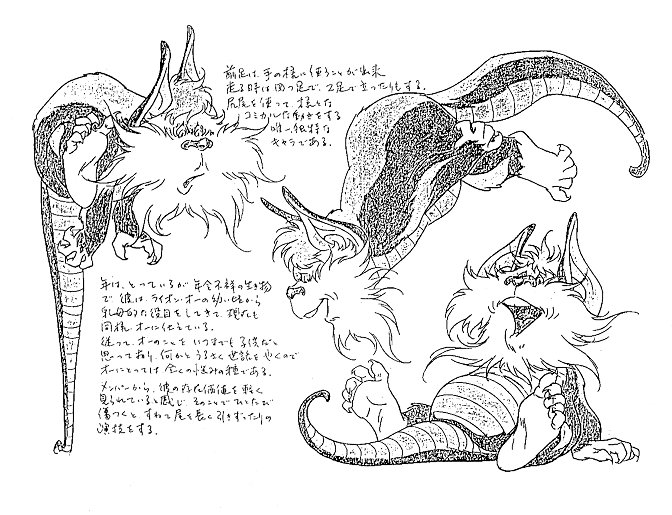 前足は、手の様に使うことが出来
走る時は四つ足で、2足で立ったりもする。
尻尾を使って、様々な
コミカルな動きをする
唯一独特な
キャラである。
年は、とっているが年令不祥の生き物
で彼は、ライオン・オーの幼い時から
乳母的な役目をしてきて、現在も
同様、オーに仕えている。
従って、オーのことをいつまでも子供だと
思っており、何かとうるさく世話をやくので
オーにとっては全くの悩みの種である。
メンバーから、彼の存在価値を軽く
見られていると感じ、そのことでひとたび
傷つくと、すねて尾を長く引きずったりの
演技をする。